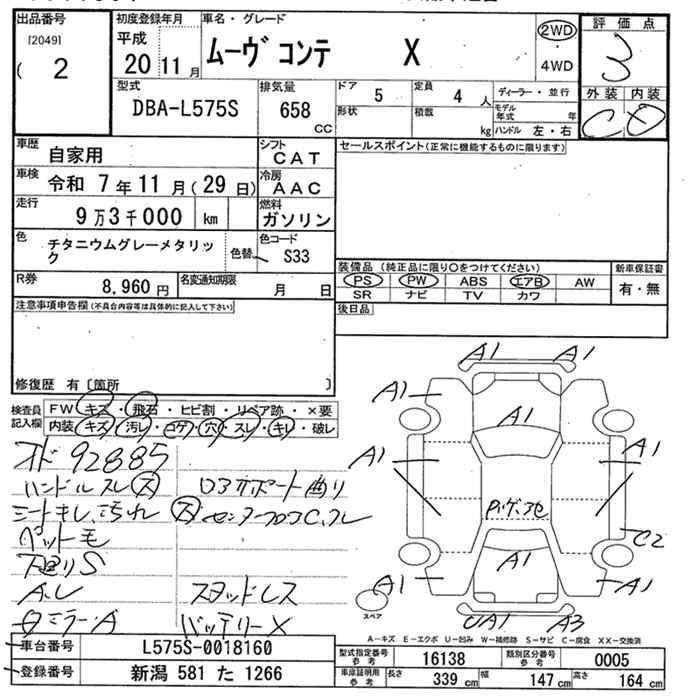 出品番号
[2049]
( 2
初度登録年月
平成
20 11 月
車名・グレード
ムーヴ コンテ X
2WD
4WD
評価点
3
外装 内装
C D
型式
DBA-L575S
排気量
658
CC
ドア
5
定員
4 人
ディーラー・並行
形状
積載
kg
モデル年式 年
ハンドル 左・右
車歴
自家用
シフト
CAT
車検
令和 7 年 11 月 ( 29 日)
冷房
AAC
走行
9 万 3 千 000 km
燃料
ガソリン
色
チタニウムグレーメタリック
色替
色コード
S33
R券
8,960 円
名変通知期限
月 日
セールスポイント(正常に機能するものに限ります)
装備品 (純正品に限り○をつけてください)
PS PW ABS エアB AW
SR ナビ TV カワ
新車保証書
有・無
後日品
注意事項申告欄(不具合内容等は具体的に記入して下さい)
修復歴 有 〔箇所 〕
検査員記入欄
FW キズ・飛石・ヒビ割・リペア跡・×要
内装 キズ・汚レ・コゲ・穴・スレ・キレ・破レ
オド 92885
ハンドルスレ ス
ロアサポート曲り
シートキレ、汚れ
ペット毛
下廻りS
スタッドレス
バッテリーX
A1 A1
A1
A1
A1 A1
A1 A1
C2
UA1 A3
スペア
A-キズ E-エクボ U-凹み W-補修跡 S-サビ C-腐食 XX-交換済
車台番号
L575S-0018160
登録番号
新潟 581 た 1266
型式指定番号 参考
16138
類別区分番号 参考
0005
車庫証明用 参考
長さ 339 cm
幅 147 cm
高さ 164 cm